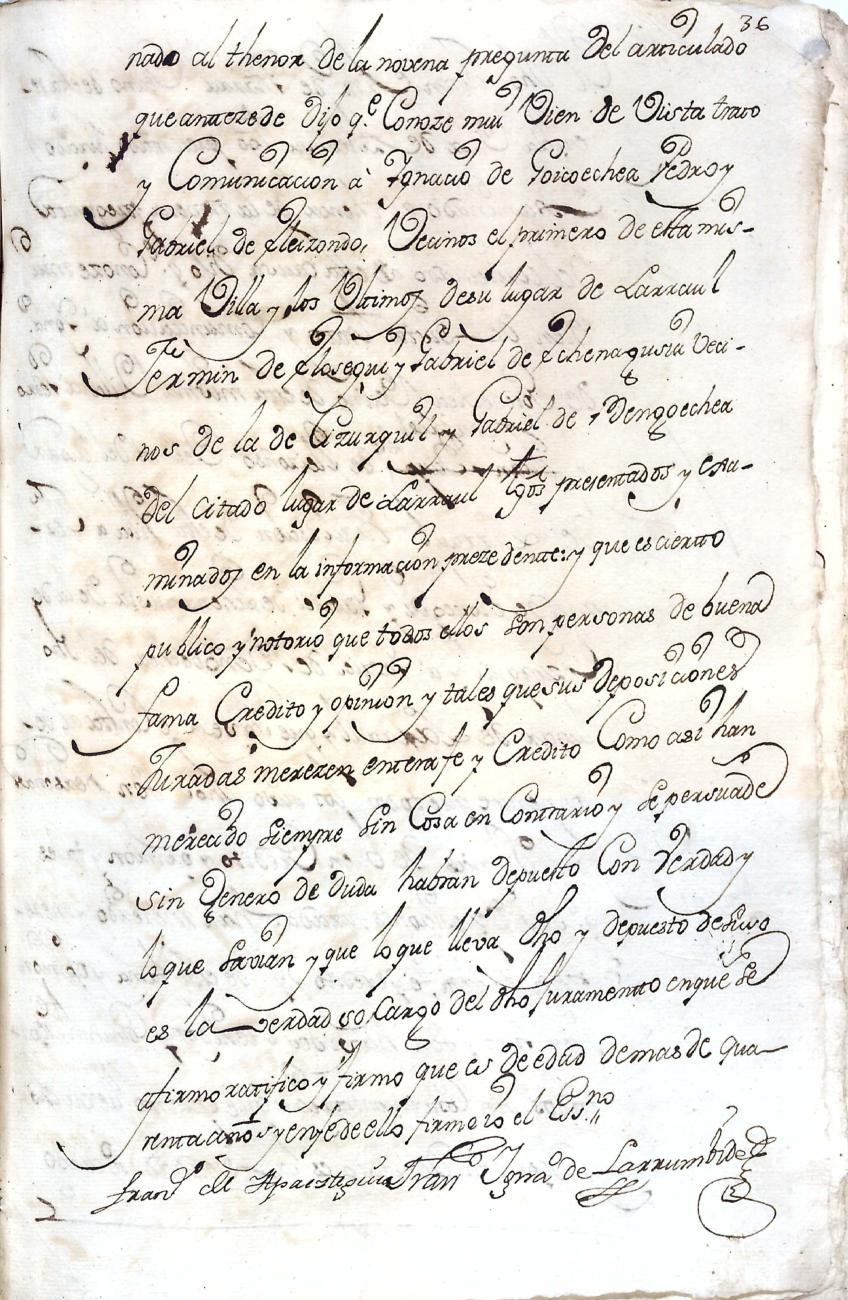 36
nado al thenor de la novena pregunta del articulado
que antezede dijo q.e Conoze mui Vien de Vista trato
y Comunicacion à Ignacio de Goicoechea Pedro y
Gabriel de Eleizondo, Vecinos el primero de esta mis-
ma Villa y los Ultimos de su lugar de Larraul
Fermin de Elosegui y Gabriel de Echenagusia Veci-
nos de la de Cizurquil y Gabriel de Vengoechea
del citado lugar de Larraul tgos presentados y exa-
minados en la informacion prezedente: y que es cierto
publico y notorio que todos ellos son personas de buena
fama Credito y opinion y tales que sus deposiciones
Juradas merezen entera fe y Credito Como asi han
merecido siempre sin Cosa en Contrario y se persuade
sin Genero de duda habran depuesto Con Verdad y
lo que savian y que lo que lleva dho y depuesto de suso
es la verdad so Cargo del dho Juramento en que se
afirmo ratifico y firmo que es de edad de mas de qua-
renta años y en fe de ello firme io el Ess.no
Fran.co de Apaeztegui Fran.co Igna.o de Larrumbide